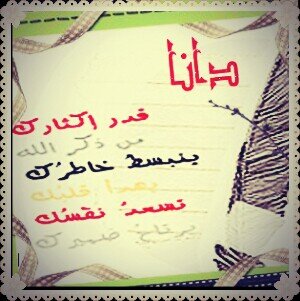 دانا
قدر اكثارك
من ذكر الله
ينبسط خاطرك
يهدأ قلبك
تسعد نفسك
يرتاح ضميرك